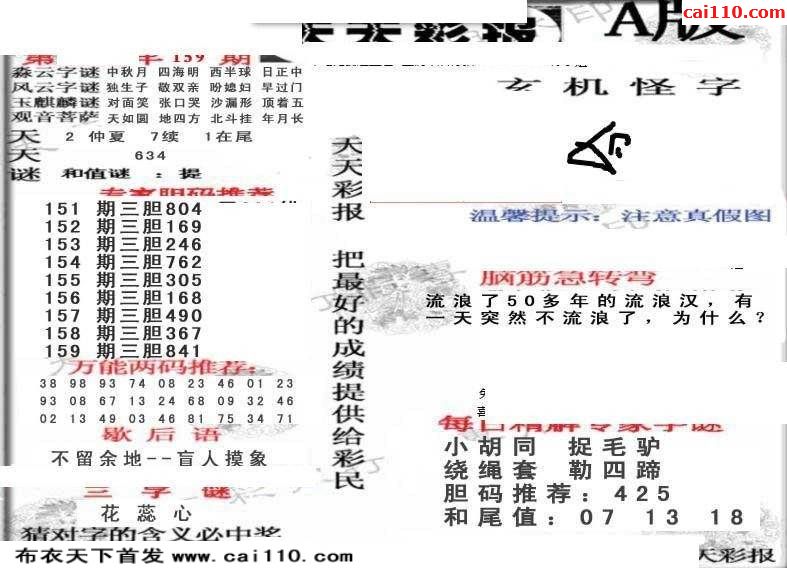 cai110.com
天天彩报 A版
第 年 159 期
淼云字谜 中秋月 四海明 西半球 日正中
风云字谜 独生子 敬双亲 盼媳妇 早过门
玉麒麟谜 对面笑 张口哭 沙漏形 顶着五
观音菩萨 天如圆 地四方 北斗挂 年月长
天 2 仲夏 7续 1在尾
天 634
谜 和值谜 : 提
专家胆码推荐
151 期三胆804
152 期三胆169
153 期三胆246
154 期三胆762
155 期三胆305
156 期三胆168
157 期三胆490
158 期三胆367
159 期三胆841
万能两码推荐:
38 98 93 74 08 23 46 01 23
93 08 67 13 24 68 09 32 46
02 13 49 03 46 81 75 34 71
歇后语
不留余地--盲人摸象
三字谜
花蕊心
猜对字的含义必中奖
布衣天下首发 www.cai110.com
天天彩报 把最好的成绩提供给彩民
玄机怪字
温馨提示: 注意真假图
脑筋急转弯
流浪了50多年的流浪汉，有
一天突然不流浪了，为什么?
每日精解专家字谜
小胡同 捉毛驴
绕绳套 勒四蹄
胆码推荐: 425
和尾值: 07 13 18
天彩报